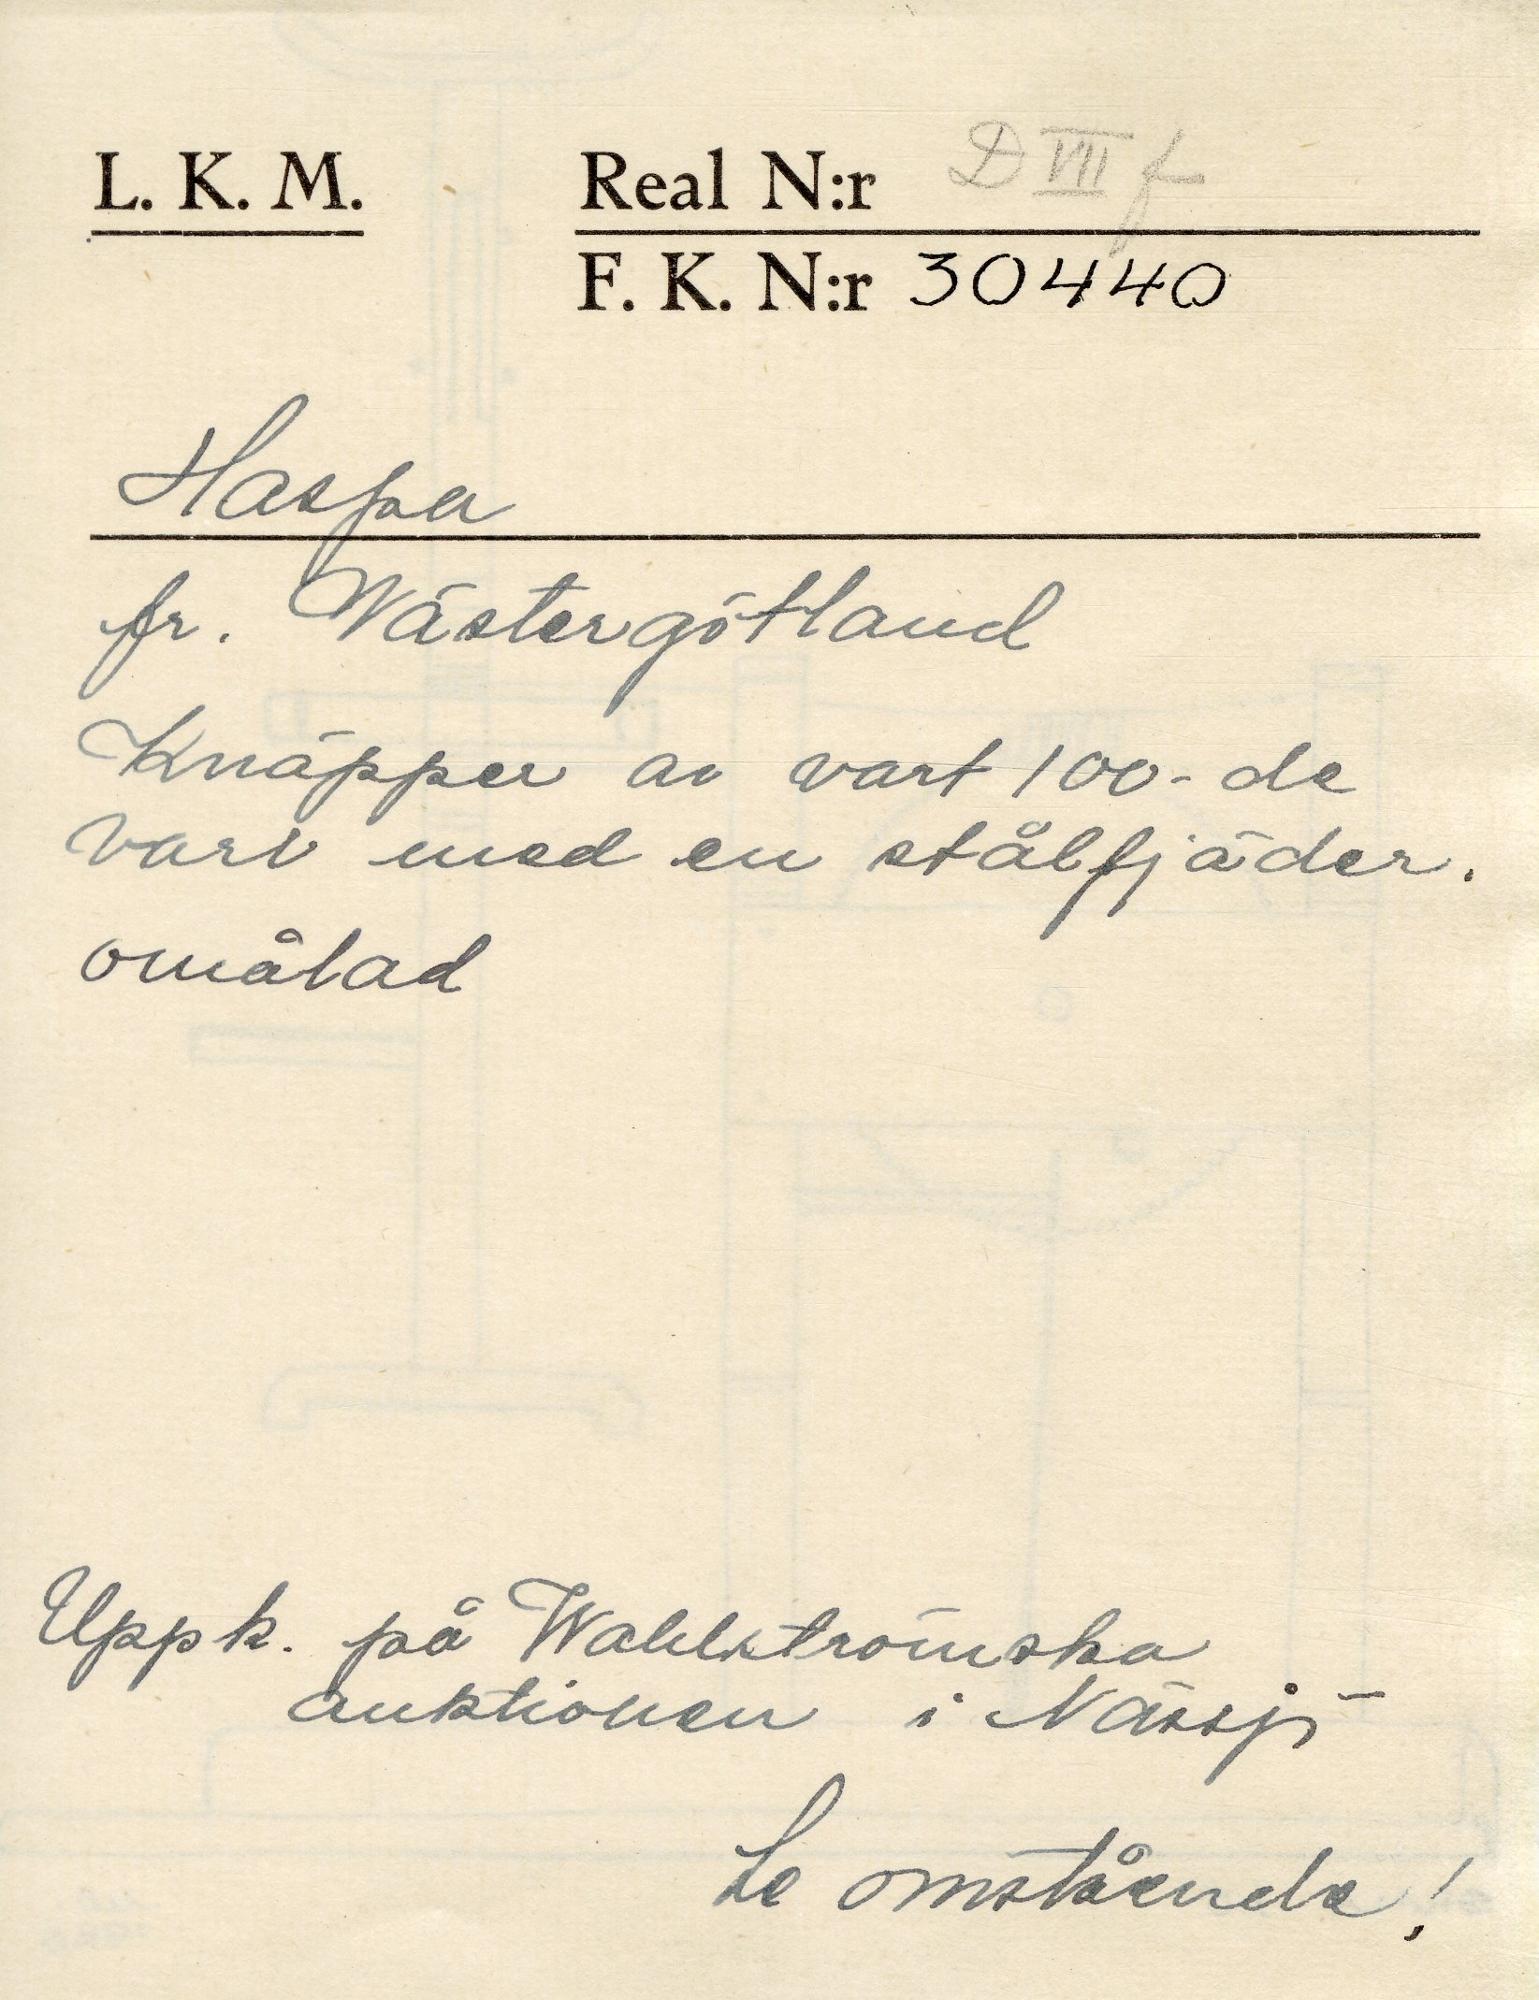 L. K. M.
Real N:r D VII f
F. K. N:r 30440
Haspa
fr. Västergötland
Knäpper av vart 100-de
varv med en stålfjäder.
omålad
Uppk. på Wahlströmska
auktionen i Nässjö
Se omstående!